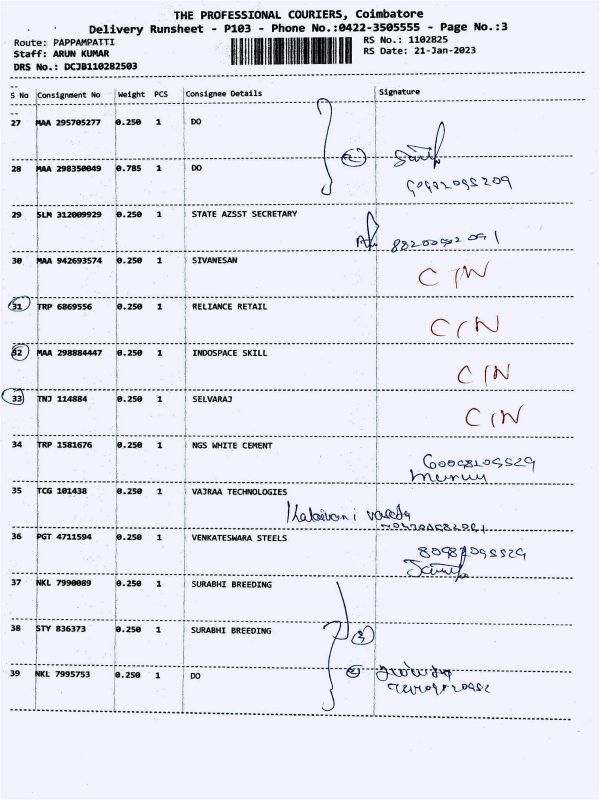 THE PROFESSIONAL COURIERS, Coimbatore
Delivery Runsheet - P103 - Phone No.:0422-3505555 - Page No.:3
Route: PAPPAMPATTI
RS No.: 1102825
Staff: ARUN KUMAR
RS Date: 21-Jan-2023
DRS No.: DCJB110282503
S No Consignment No Weight PCS Consignee Details Signature
27 MAA 295705277 0.250 1 DO
28 MAA 298350049 0.785 1 DO
29 SLM 312009929 0.250 1 STATE AZSST SECRETARY
30 MAA 942693574 0.250 1 SIVANESAN C/N
31 TRP 6869556 0.250 1 RELIANCE RETAIL C/N
32 MAA 298884447 0.250 1 INDOSPACE SKILL C/N
33 TNJ 114884 0.250 1 SELVARAJ C/N
34 TRP 1581676 0.250 1 NGS WHITE CEMENT
35 TCG 101438 0.250 1 VAJRAA TECHNOLOGIES
36 PGT 4711594 0.250 1 VENKATESWARA STEELS
37 NKL 7990089 0.250 1 SURABHI BREEDING
38 STY 836373 0.250 1 SURABHI BREEDING
39 NKL 7995753 0.250 1 DO